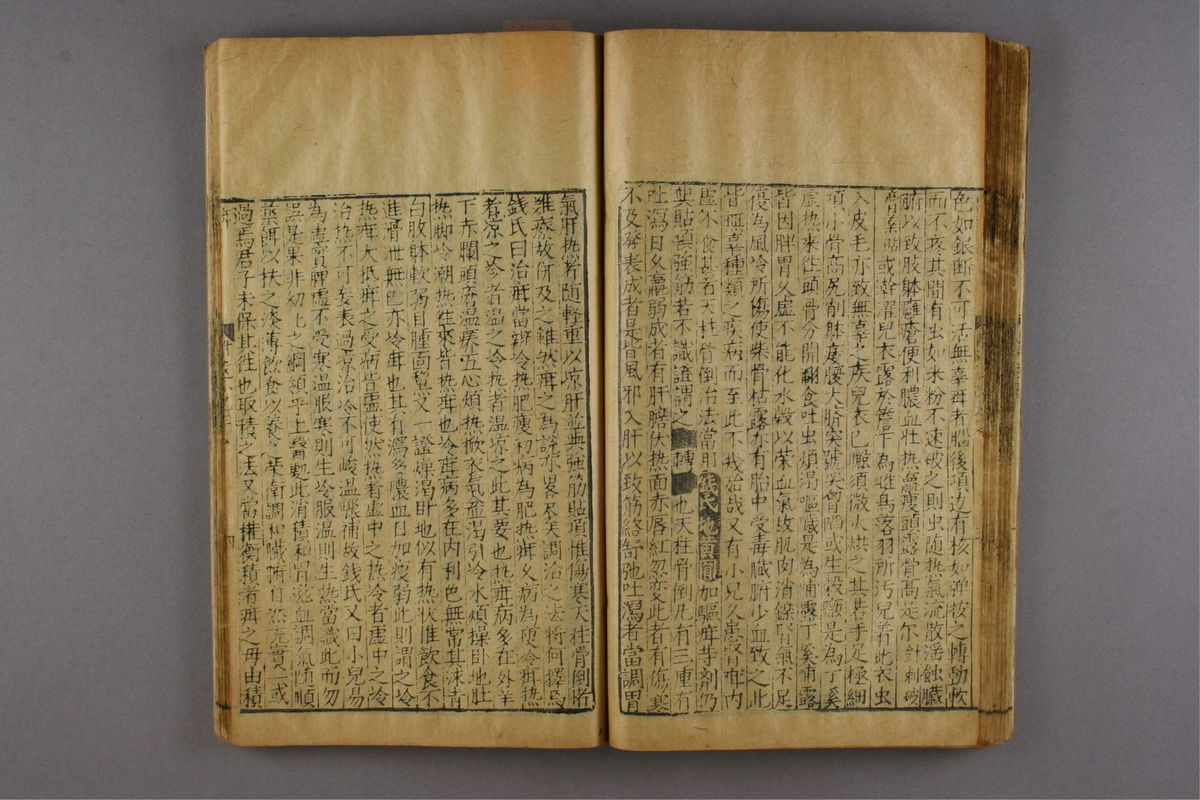 色如銀断不可活無辜母者腦後項边有核如弹按之轉動軟
而不疼其間有虫如米粉不速破之則虫随热氣流散滛蝕臟
腑以致肢躰癰瘡便利膿血壮热羸瘦頭露骨高是尓針刺破
膏藥貼或澣濯兒衣露於簷下為雌鳥落羽所汚兒着此衣虫
入皮毛亦致無辜之疾兒衣已服須微火烘之其甚手足極細
項小骨高尻削躰瘦腹大臍突號哭胷陷或生榖癥是為丁奚
虚热来徃頭骨分開翻食吐虫煩渴嘔噦是為哺露丁奚哺露
皆因脾胃久虚不能化水榖以荣血氣故肌肉消鑠腎氣不足
復為風冷所傷使柴骨枯露亦有胎中受毒臓腑少血致之此
皆無辜種類之疾病而至此不我始哉又有小兒久患腎疳内
虚不食甚者天柱骨倒治法當用熊氏地黄圓加驅疳等剤仍
要貼項強筋若不識證謂之 轉 也天柱骨倒凡有三種有
吐瀉日久羸弱成者有肝膽伏热面赤唇紅忽变此者有傷寒
不及発表成者是皆風邪入肝以致筋絡舒弛吐瀉者當調胃
氣肝热者随軽重以凉肝並與強筋貼項惟傷寒天柱骨倒皆
難療故併及之雖然疳之為說亦畧尽矣調治之法将何擇焉
錢氏曰治疳當辨冷热肥瘦初病為肥热疳久病為瘦冷疳热
者凉之冷者温之冷热者温凉之此其要也热疳病多在外鼻
下赤爛頭瘡温痒五心煩热掀衣氣麄渴引冷水煩操卧地肚
热脚冷潮热徃来皆热疳也冷疳病多在内利色無常其沫青
白肢躰軟弱目腫面黧又一證燥渴卧地似有热状惟飲食不
進滑泄無已亦冷疳也其有瀉多膿血日加瘦弱此則謂之冷
热疳大抵疳之受病皆虚使然热者虚中之热冷者虚中之冷
治热不可妄表過凉治冷不可峻温驟補故錢氏又曰小兒易
為虚實脾虚不受寒温服寒則生冷服温則生热當識此而勿
誤是果非幼幼之綱領乎上醫處此消積和胃滋血調氣随順
藥餌以扶之淡薄飲食以養之荣衛調和臓腑自然充實一或
過焉君子未保其徃也取積之法又當權衡積者疳之母由積